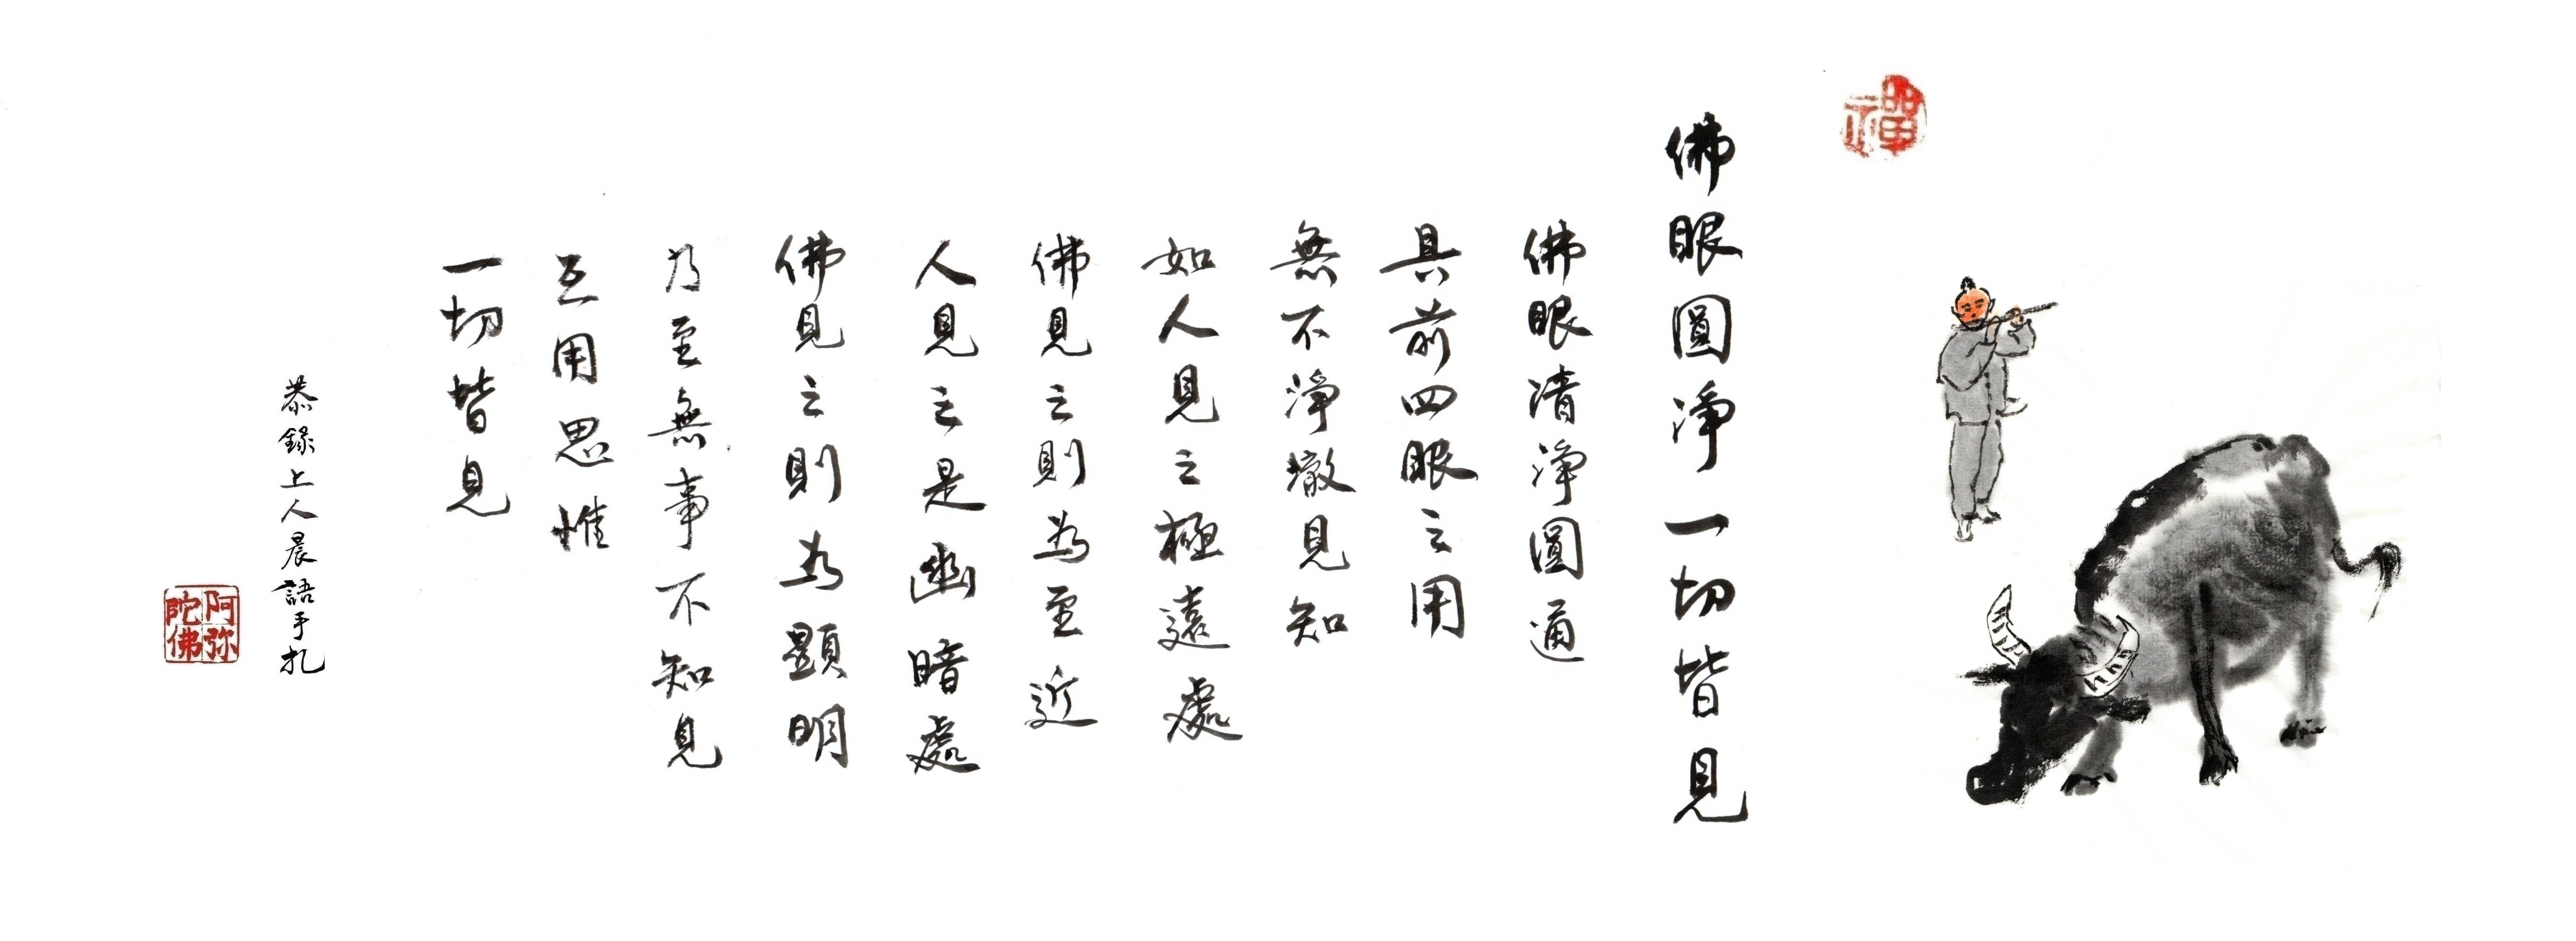 禪
佛眼圓淨一切皆見
佛眼清淨圓通
具前四眼之用
無不淨徹見知
如人見之極遠處
佛見之則為至近
人見之是幽暗處
佛見之則為顯明
乃至無事不知見
互用思惟
一切皆見
恭錄上人晨語手扎
阿弥陀佛